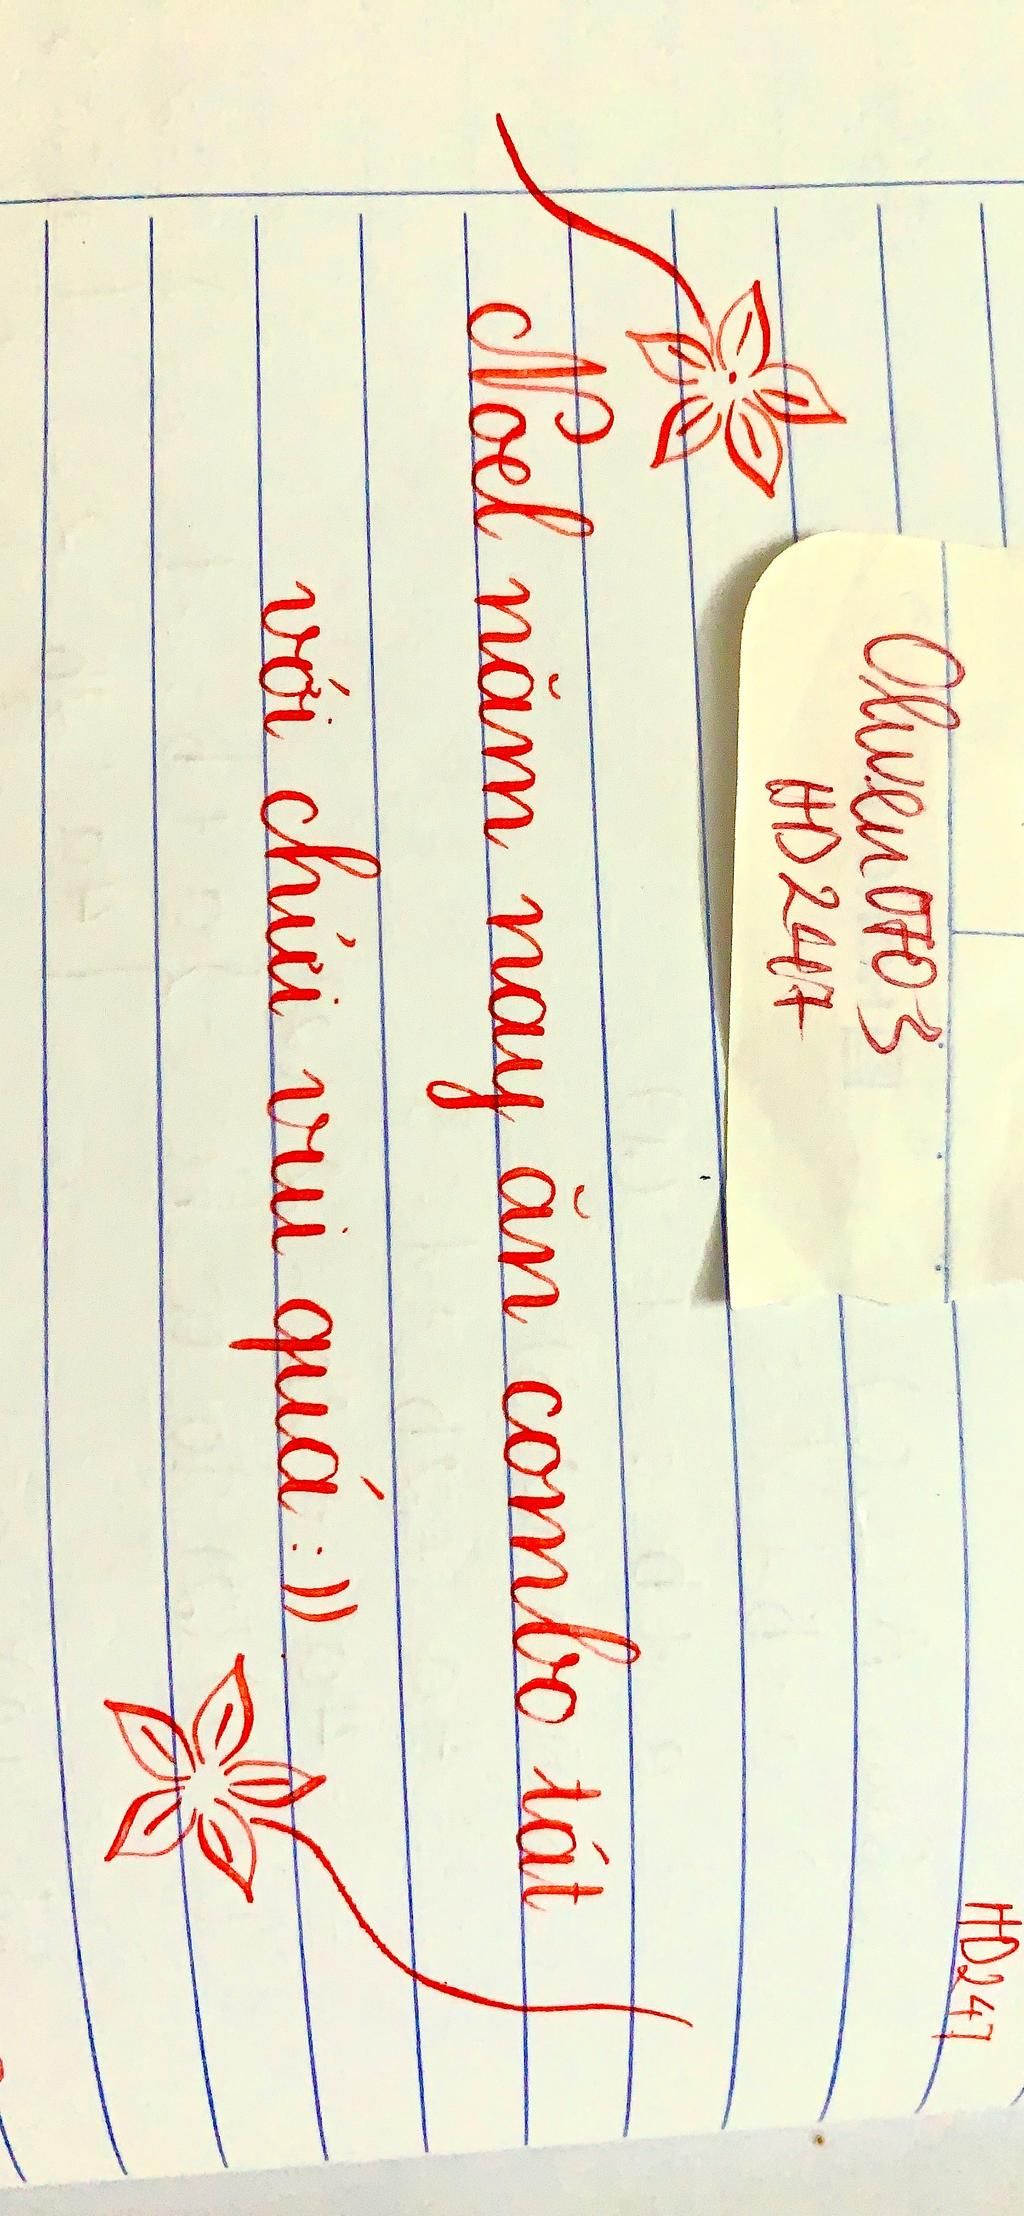 HD247
HD247
Noel năm nay ăn combo tát
với chửi vui quá :))